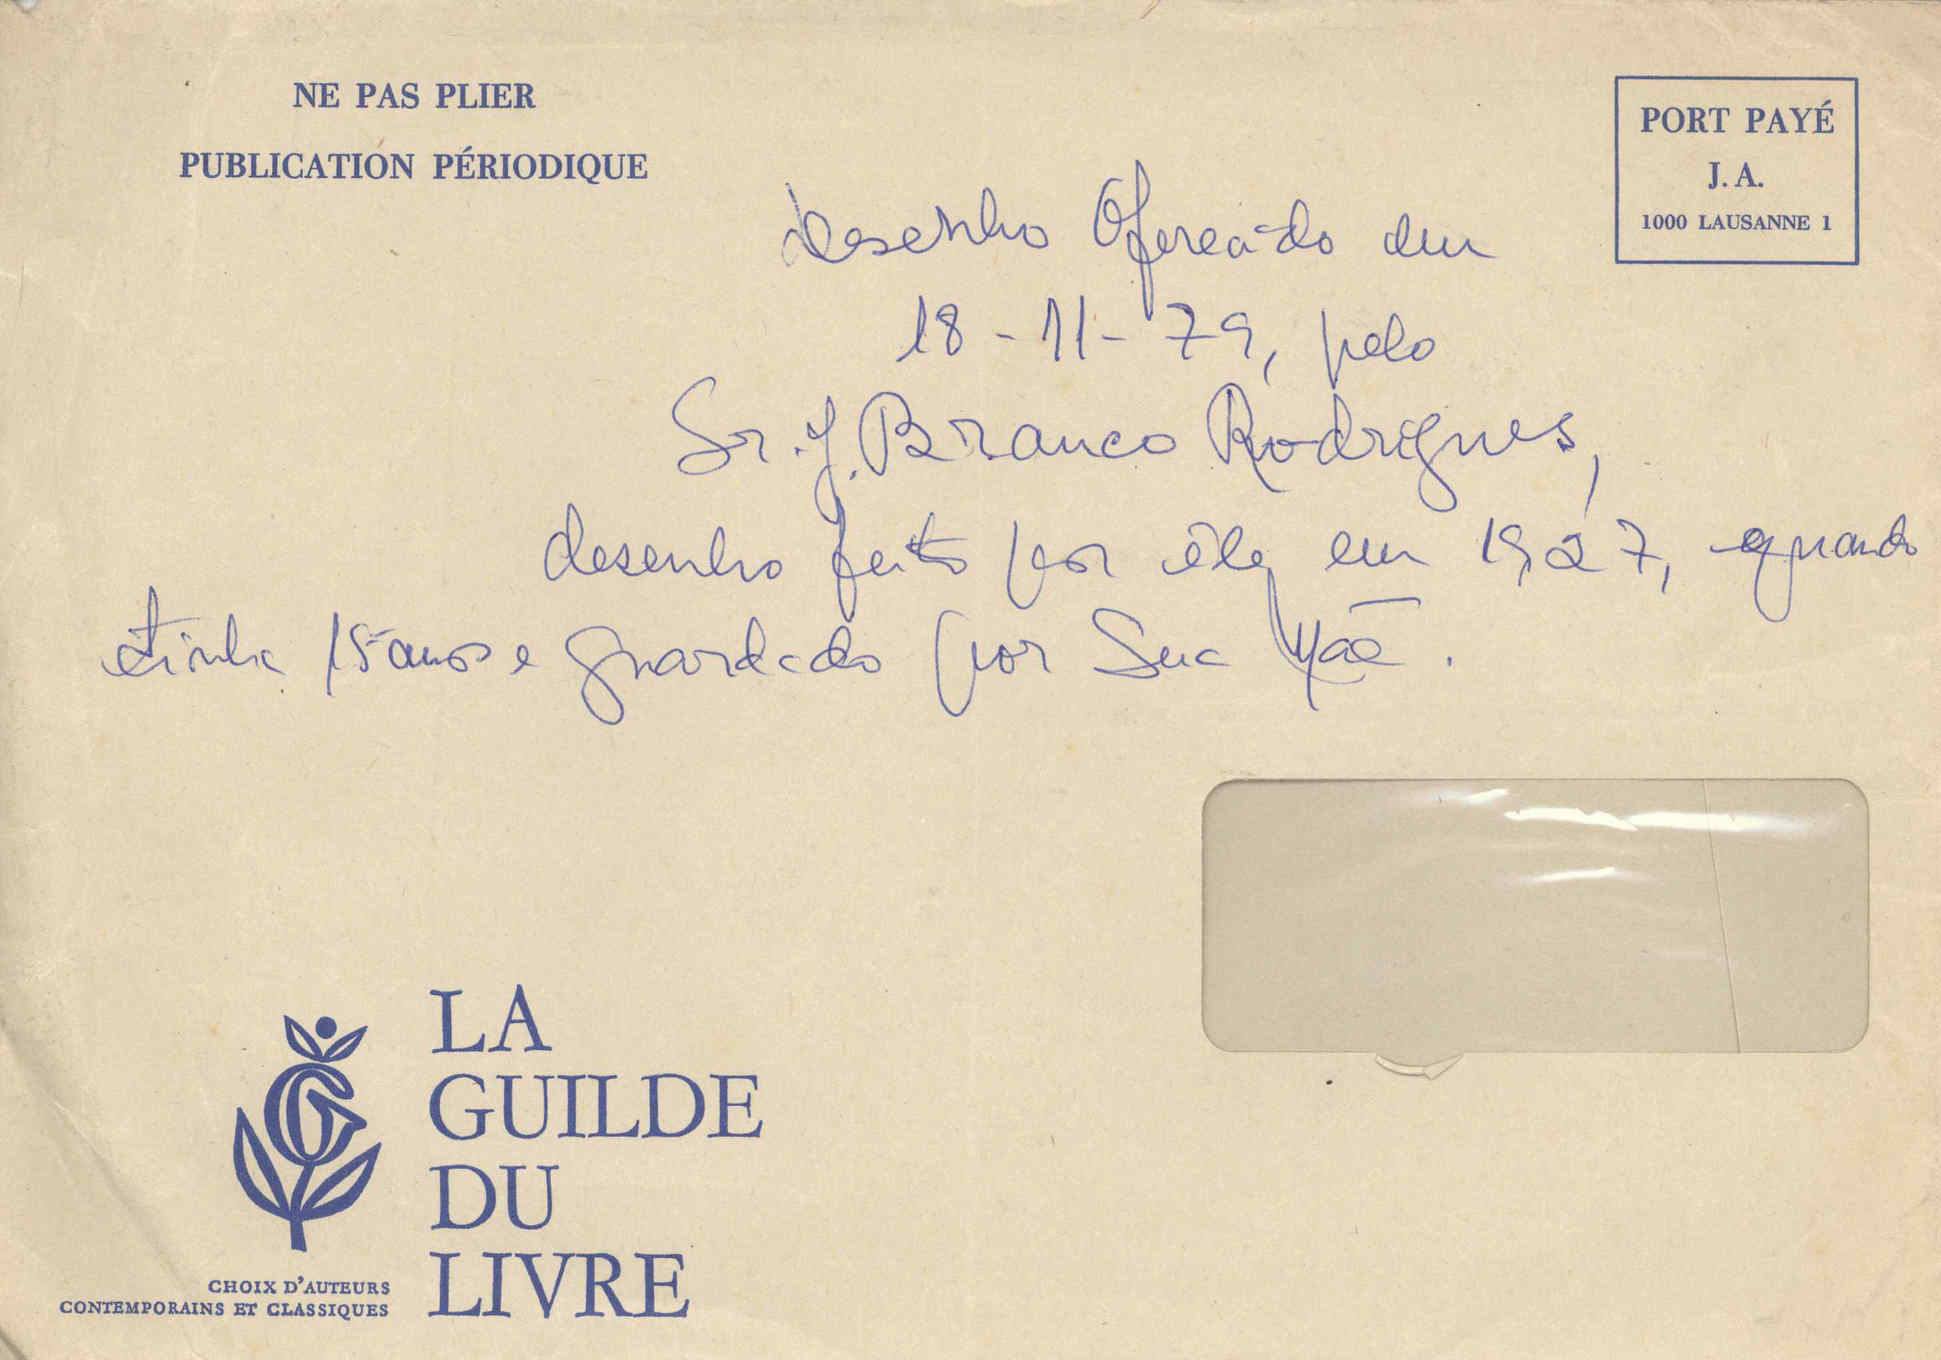 NE PAS PLIER
PUBLICATION PÉRIODIQUE
PORT PAYÉ
J. A.
1000 LAUSANNE 1
Desenho Oferecido em
18-11-79, pelo
Sr. J. Branco Rodrigues,
desenho feito por êle em 1927, quando
tinha 15 anos e guardado por Sua Mãe.
LA
GUILDE
DU
LIVRE
CHOIX D'AUTEURS
CONTEMPORAINS ET CLASSIQUES